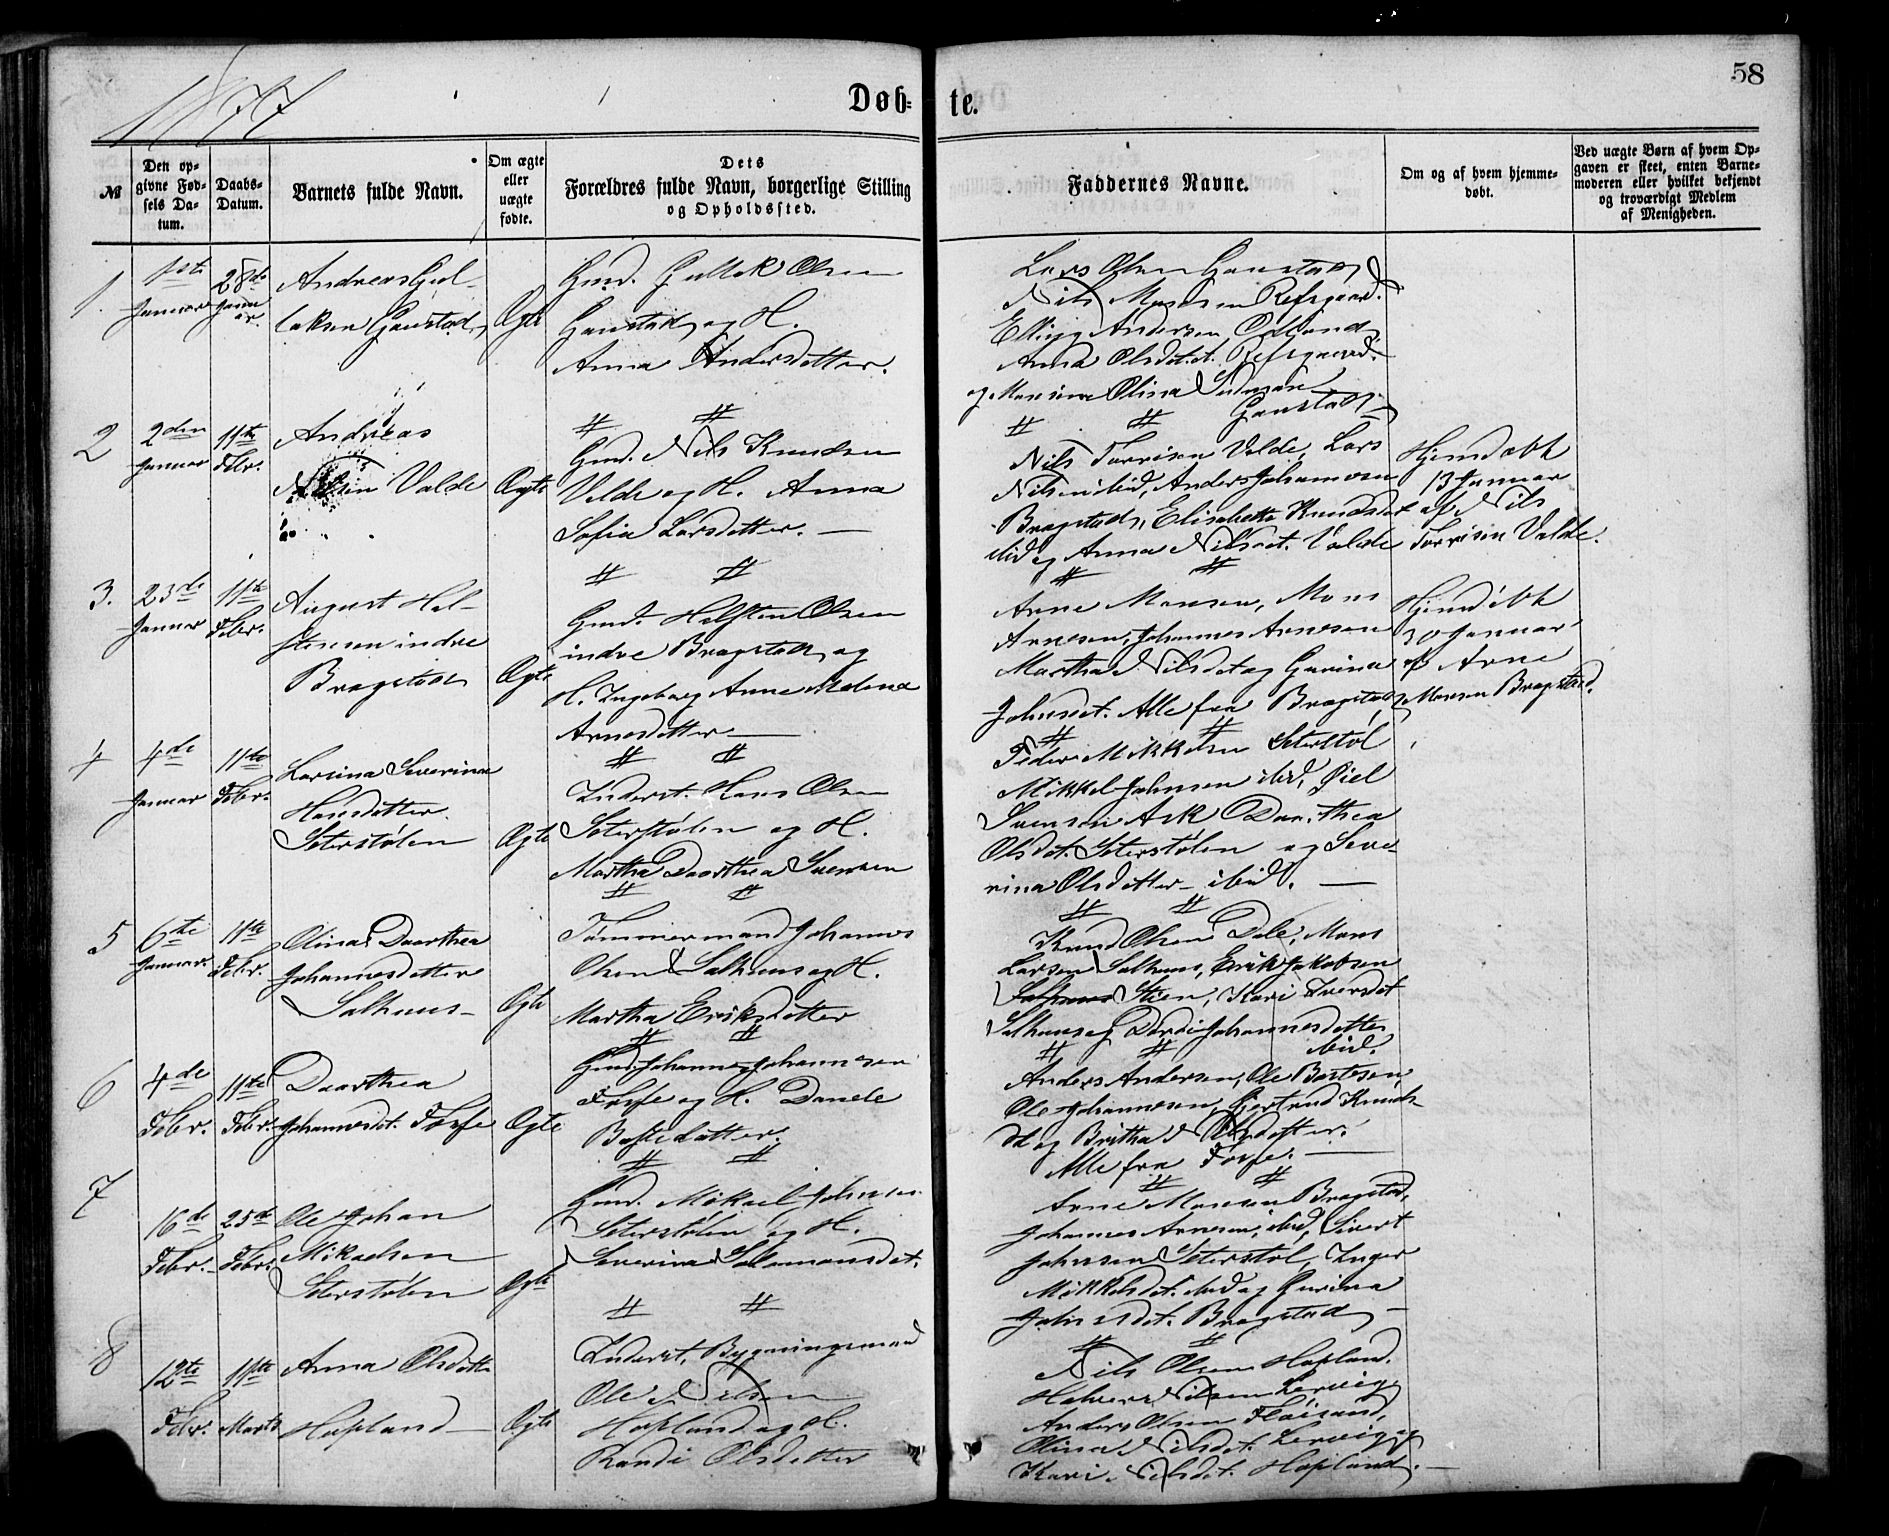 58
1877
Døb-te.
№
Den op-
givne Fød-
sels Da-
tum.
Daabs-
Datum.
Barnets fulde Navn.
Om ægte
eller
uægte
fødte.
Dets
Forældres fulde Navn, borgerlige Stilling
og Opholdssted.
Faddernes Navne.
Om og af hvem hjemme-
døbt.
Ved uægte Børn af hvem Op-
gaven er skeet, enten Barne-
moderen eller hvilket bekjendt
og troværdigt Medlem
af Menigheden.
1.
1ste
Januar
28de
Janu
ar.
Andreas Gul-
laksen Ganstad
Ægte
Gmd. Gullak Olsen
Ganstad og H.
Anna Andersdatter.
Lars Olsen Ganstad
Nils Monsen Refsgaard.
Elling Andersen Odland
Anna Olsdat. Refsgaard.
og Monsine Olina
Ganstad
2
2den
Januar
11te
Febr.
Andreas
Nilsen Valde
Ægte
Gmd. Nils Knudsen
Valde og H. Anna
Sofia Larsdatter. —
Nils Torrisen Valde, Lars
Nilsen ibid, Anders Johannesen
Bragstad, Elisabetha Knudsdat
ibid og Anna Nilsdat. Valde
Hjemdøbt
13 Januar
af Nils
Torrisen Valde.
3.
23de
Januar
11te
Febr.
August Hal-
stensen indre
Bragstad
Ægte
Gmd. Halsten Olsen
indre Bragstad og
H. Ingeborg Anne Malena
Arnesdatter —
Arne Monsen, Mons
Arnesen, Johannes Arnesen
Martha Nilsdat og Gurina
Johnsdat. Alle fra Bragstad
Hjemdøbt
30 Januar
af Arne
Monsen Bragstad.
4
4de
Januar
11te
Febr.
Larsina Severina
Hansdatter
Seterstølen
Ægte
Inderst. Hans Olsen
Seterstølen og H.
Martha Doorthea Svensen
Peder Mikkelsen Seterstøl
Mikkel Johnsen ibid, Øiel
Svensen Ask Doorthea
Olsdat. Seterstølen og Seve-
rina Olsdatter ibid. —
5
6te
Januar.
11te
Febr.
Olina Doorthea
Johannesdatter
Salhuus
Ægte
Tømmermand Johannes
Olsen Salhuus og H.
Martha Eriksdatter
Knud Olsen Dale, Mons
Larsen Salhuus, Erik Jakobsen
Stien, Kari Iversdat
Salhuus og Dordi Johannesdatter
ibid.
6
4de
Febr.
11te
Febr.
Doorthea
Johannesdat. Fosse
Ægte
Gmd. Johannes Johannesen
Fosse og H. Danele
Bastedatter.
Anders Andersen, Ole Bastesen,
Ole Johannesen, Gjertrud Knuds-
dat og Britha Olsdatter.
Alle fra Fosse. —
7
16de
Febr.
25de
Febr.
Ole Johan
Mikaelsen
Seterstølen
Ægte
Gmd. Mikael Johnsen
Seterstølen og H.
Severina Salamonsdat.
Arne Monsen Bragstad,
Johannes Arnesen, ibid, Sivert
Johnsen Seterstøl, Inger
Mikkelsdat. ibid og Gurina
Johnsdat. Bragstad —
8
12te
Febr.
11te
Marts
Anna Olsdatter
Hopland
Ægte
Inderst, Bygningsmand
Ole Nilsen
Hopland og H.
Randi Olsdatter
Nils Olsen Hopland.
Halvor Nilsen Lervig
Anders Olsen Fløisand,
Olina Nilsdat. Lervig og
Kari Nilsdat. Hopland. —